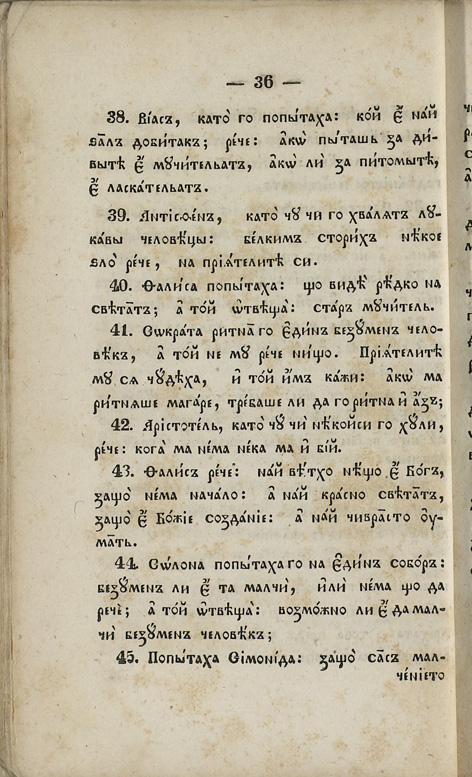 — 36 —
38. Віасъ, като̀ го попы́таха: ко́й є҆̀ на́й
ѕа́лъ добитакъ; ре́че: а҆кѡ̀ пы́ташь за ди́-
вытѣ є҆̀ мꙋчи́тельатъ, а҆кѡ̀ лѝ за пи́томытѣ,
є҆̀ ласка́тельатъ.
39. Антісѳе́нъ, като̀ чꙋ̀ чи го хва́лѧтъ лꙋ-
ка́вы человѣ́цы: бе́лкимъ стори́хъ нѣ́кое
ѕло̀ ре́че, на прїѧ́телите си.
40. Ѳали́са попы́таха: що видѣ̀ рѣ́дко на
свѣ́татъ; а҆ то́й ѿвѣща̀: ста́ръ мꙋчи́тель.
41. Сѡкра́та ритна̀ го є҆ди́нъ безꙋ́менъ чело-
вѣ́къ, а҆ то́й не мꙋ ре́че ни́що. Прїѧ́телите
мꙋ сѧ чꙋ́дѣха, и҆ то́й и҆̀мъ ка́жи: а҆кѡ̀ ма
ри́тнѧше мага́ре, тре́баше ли да го ри́тна и҆ а҆́зъ;
42. Арісто́тель, като̀ чꙋ̀ чи нѣ́койси го хꙋ́ли,
ре́че: кога̀ ма не́ма не́ка ма и҆ бі́й.
43. Ѳали́съ ре́че: на́й ве́тхо нѣ́що є҆̀ Бо́гъ,
защо̀ не́ма нача́ло: а҆ на́й кра́сно свѣ́татъ,
защо̀ є҆̀ Бо́жїе созда́нїе: а҆ на́й чивра́сто оу҆-
ма́тъ.
44. Сѡ́лона попы́таха го на є҆ди́нъ собо́ръ:
безꙋ́менъ ли є҆̀ та малчи́, и҆лѝ не́ма що да
речѐ; а҆ то́й ѿвѣща̀: возмо́жно ли є҆̀ да мал-
чи́ безꙋ́менъ человѣ́къ;
45. Попы́таха Сімоні́да: защо̀ са́съ мал-
че́нїето